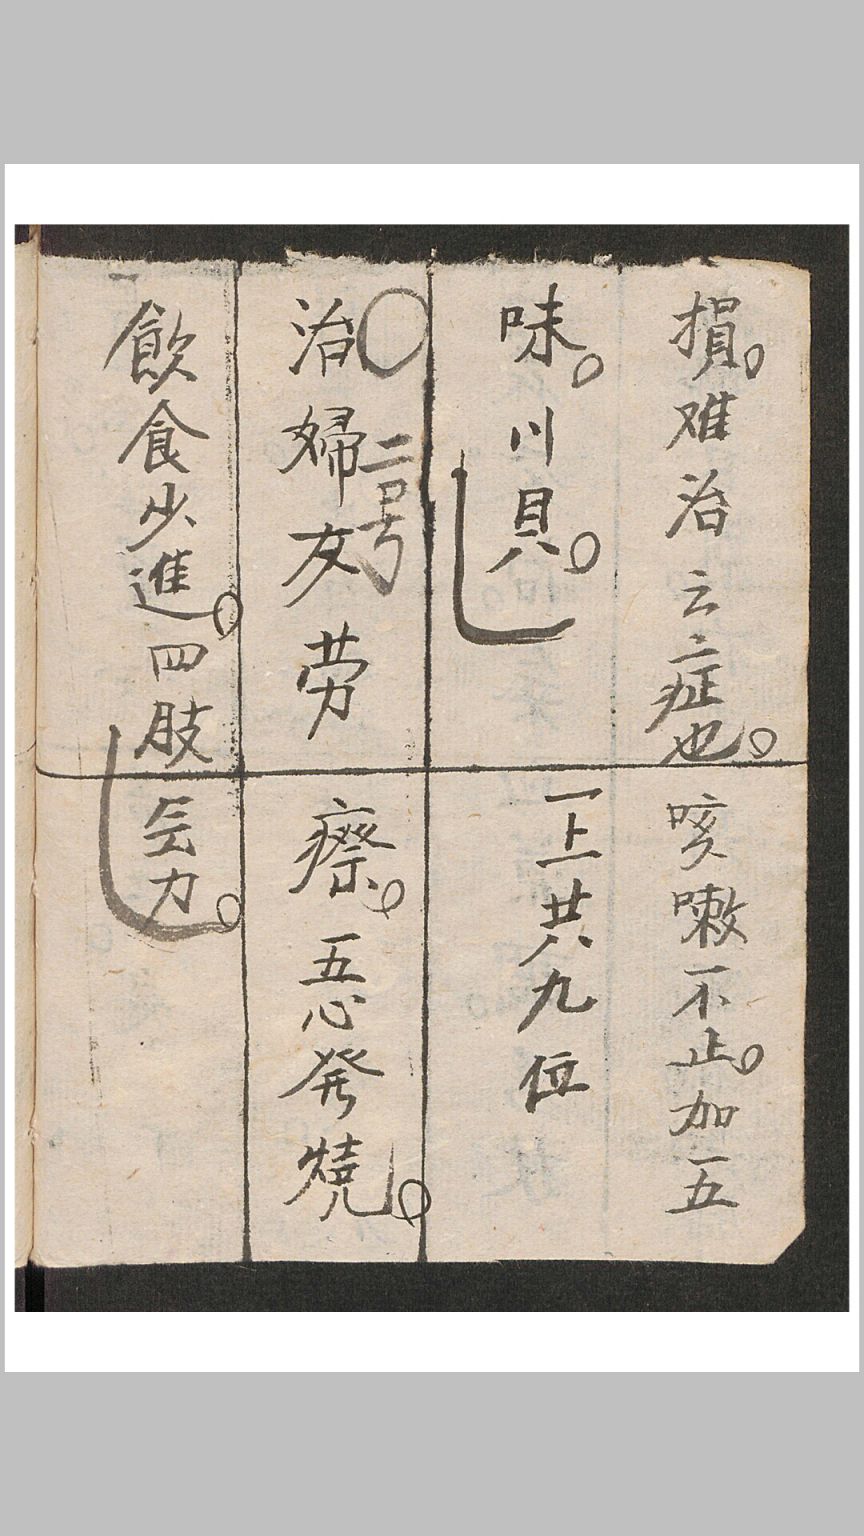 損。难治云症也。咳嗽不止。加五
味。川貝。一上共九位
〇二号
治婦友劳瘵。五心発燒。
飲食少進。四肢乞力。